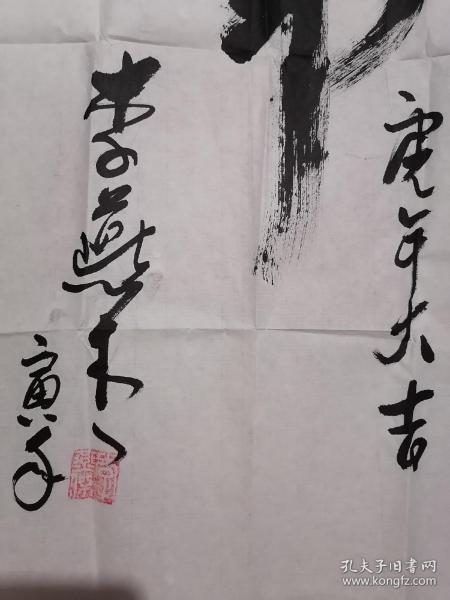 虎年大吉
李燕杰
寅年
孔夫子旧书网
www.kongfz.com